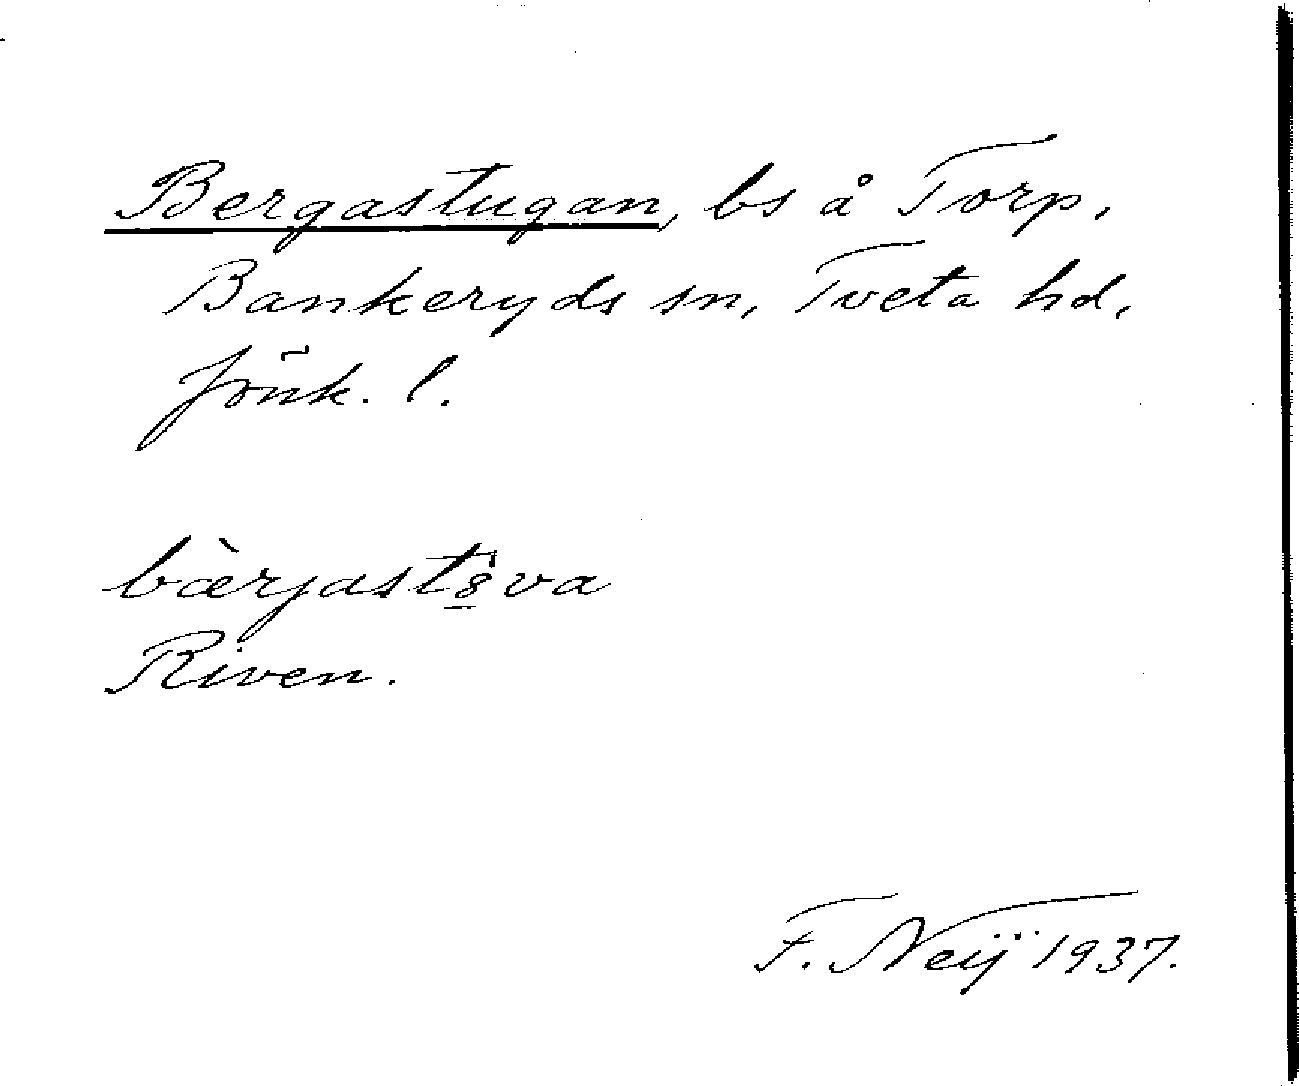 Bergastugan, bs å Torp,
Bankeryds sn, Tveta hd,
Jönk. l.
bærjast8va
Riven.
F. Neij 1937.